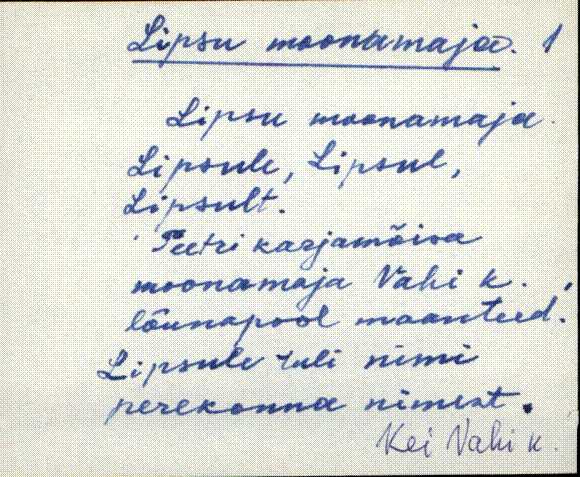 Lipsu moonamaja. 1
Lipsu moonamaja.
Lipsule, Lipsul,
Lipsult.
Peetri karjamõisa
moonamaja Vahi k.
lõunapool maanteed.
Lipsule tuli nimi
perekonna nimest.
Kei Vahi k.